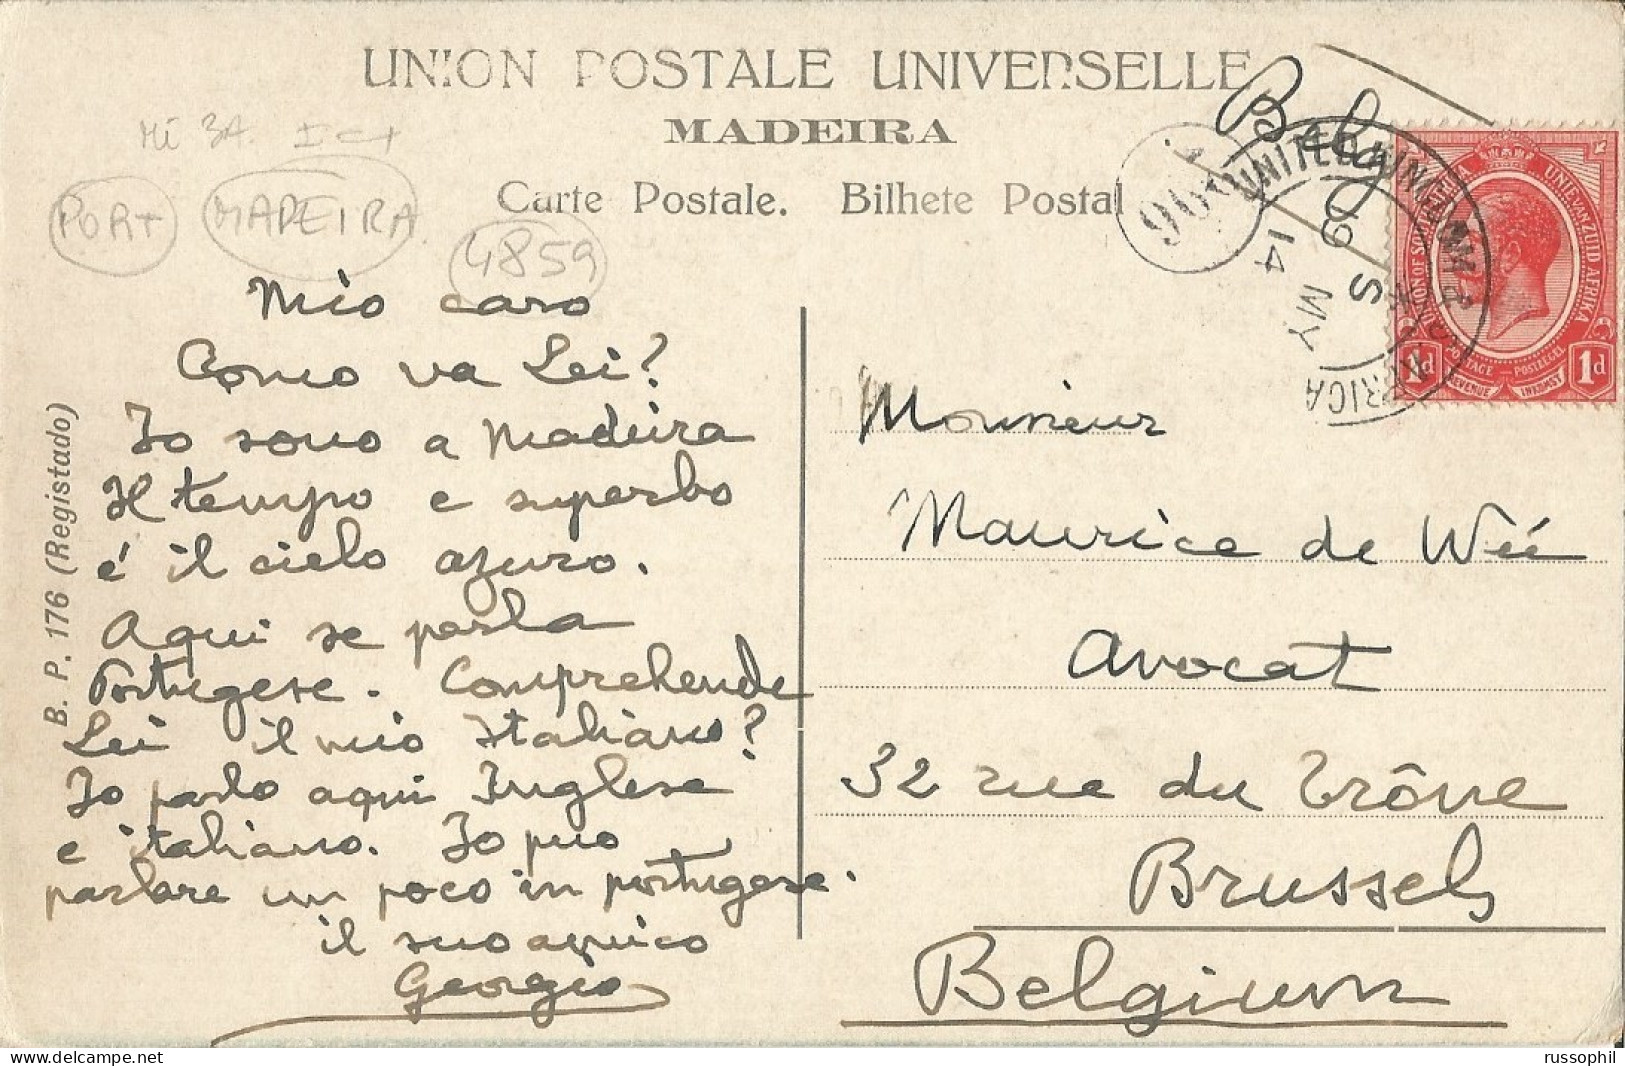 UNION POSTALE UNIVERSELLE
MADEIRA
Carte Postale. Bilhete Postal
Belg
PORT
MADEIRA
4859
906
UNITED
19 S
14 MY
AFRICA
UNION OF SOUTH AFRICA
UNIE VAN ZUID AFRIKA
POSTAGE — POSTZEGEL
REVENUE INKOMST
1d 1d
B. P. 176 (Registado)
Mio caro
Como va Lei?
Io sono a Madeira
Il tempo e superbo
é il cielo azuro.
Aqui se parla
Portugese. Comprehende
Lei il mio Italiano?
Io parlo aqui Inglese
e italiano. Io puo
parlare un poco in portugese.
il suo amico
Georgio
Monsieur
Maurice de Wéé
Avocat
32 rue du Trône
Brussels
Belgium
russophil